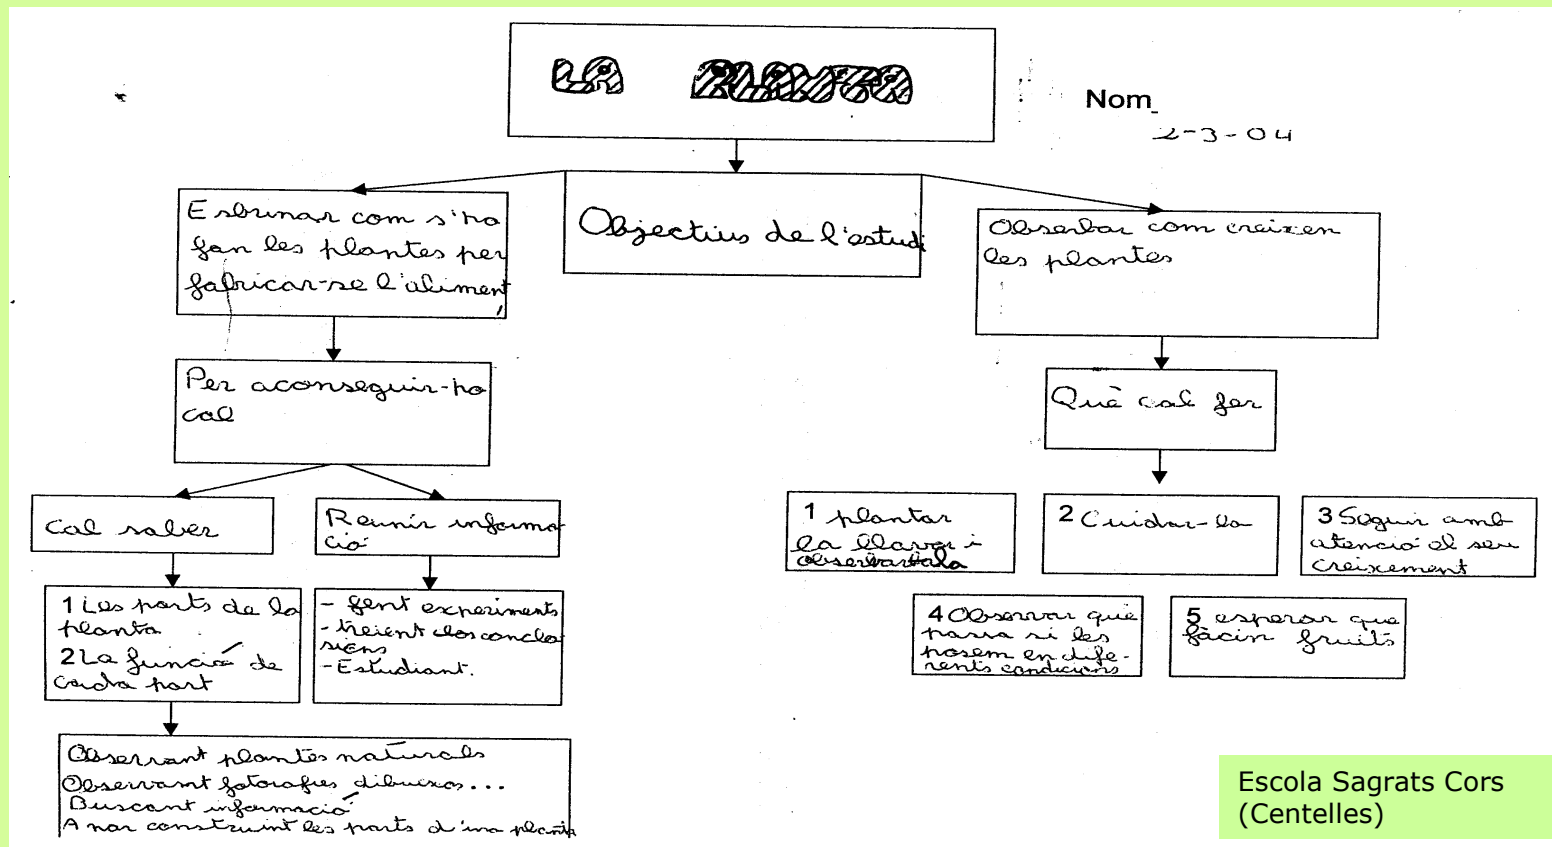 LA PLANTA
Nom
2-3-04
Esbrinar com s'ho
fan les plantes per
fabricar-se l'aliment
Objectius de l'estudi
Obserbar com creixen
les plantes
Per aconseguir-ho
cal
Què cal fer
Cal saber
Reunir informa
ció
1 plantar
la llavor i
obserbarbala
2 Cuidar-la
3 Seguir amb
atenció el seu
creixement
1 Les parts de la
planta
2 La funció de
cada part
- fent experiments
- treient los conclo
sions
- Estudiant.
4 Observar què
passa si les
posem en dife-
rents condicions
5 esperar que
fàcin fruits
Observant plantes naturals
Observant fotorafies dibuixos...
Buscant informació
Anar construint les parts d'una planta
Escola Sagrats Cors
(Centelles)